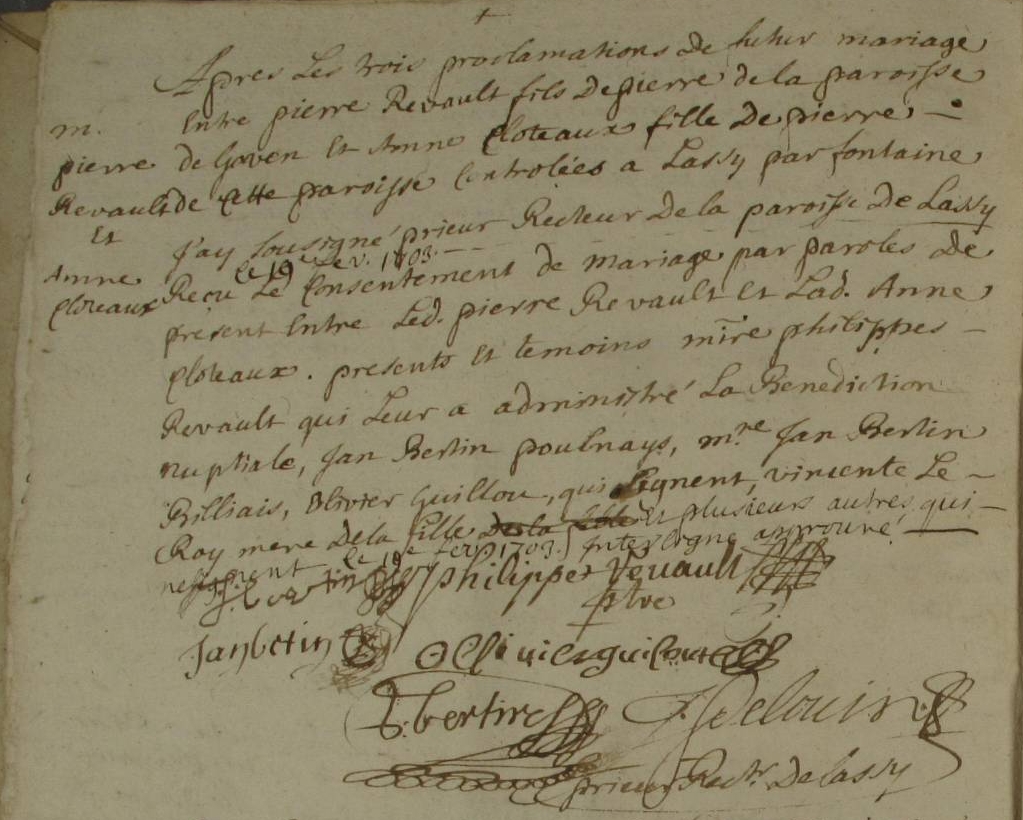 Apres Les trois proclamations De futur mariage
m. Entre pierre Revault fils De pierre de la paroisse
pierre de Goven Et Anne Cloteaux fille De pierre
Revault de Cette paroisse Controlées a Lassy par fontaine
Et J'ay Sousigné prieur Recteur De la paroisse De Lassy
le 19e fev. 1703.
Anne Recu Le Consentement de mariage par paroles de
Cloteaux present Entre Led. pierre Revault Et Lad. Anne
Cloteaux. presents Et temoins mire philippes
Revault qui Leur a administré La Benediction
nuptiale, Jan Bertin poulnays, m.re Jan Bertin
Rilliais, Olivier Guillou, qui Signent, vincente Le
Roy mere de la fille Et plusieurs autres qui
ne signent le 19e fev. 1703. Interligne approuvé
philippes Revault
ptre
Jan bertin
Ollivier guillou
bertin
Delouin
prieur Rectr. De lassy